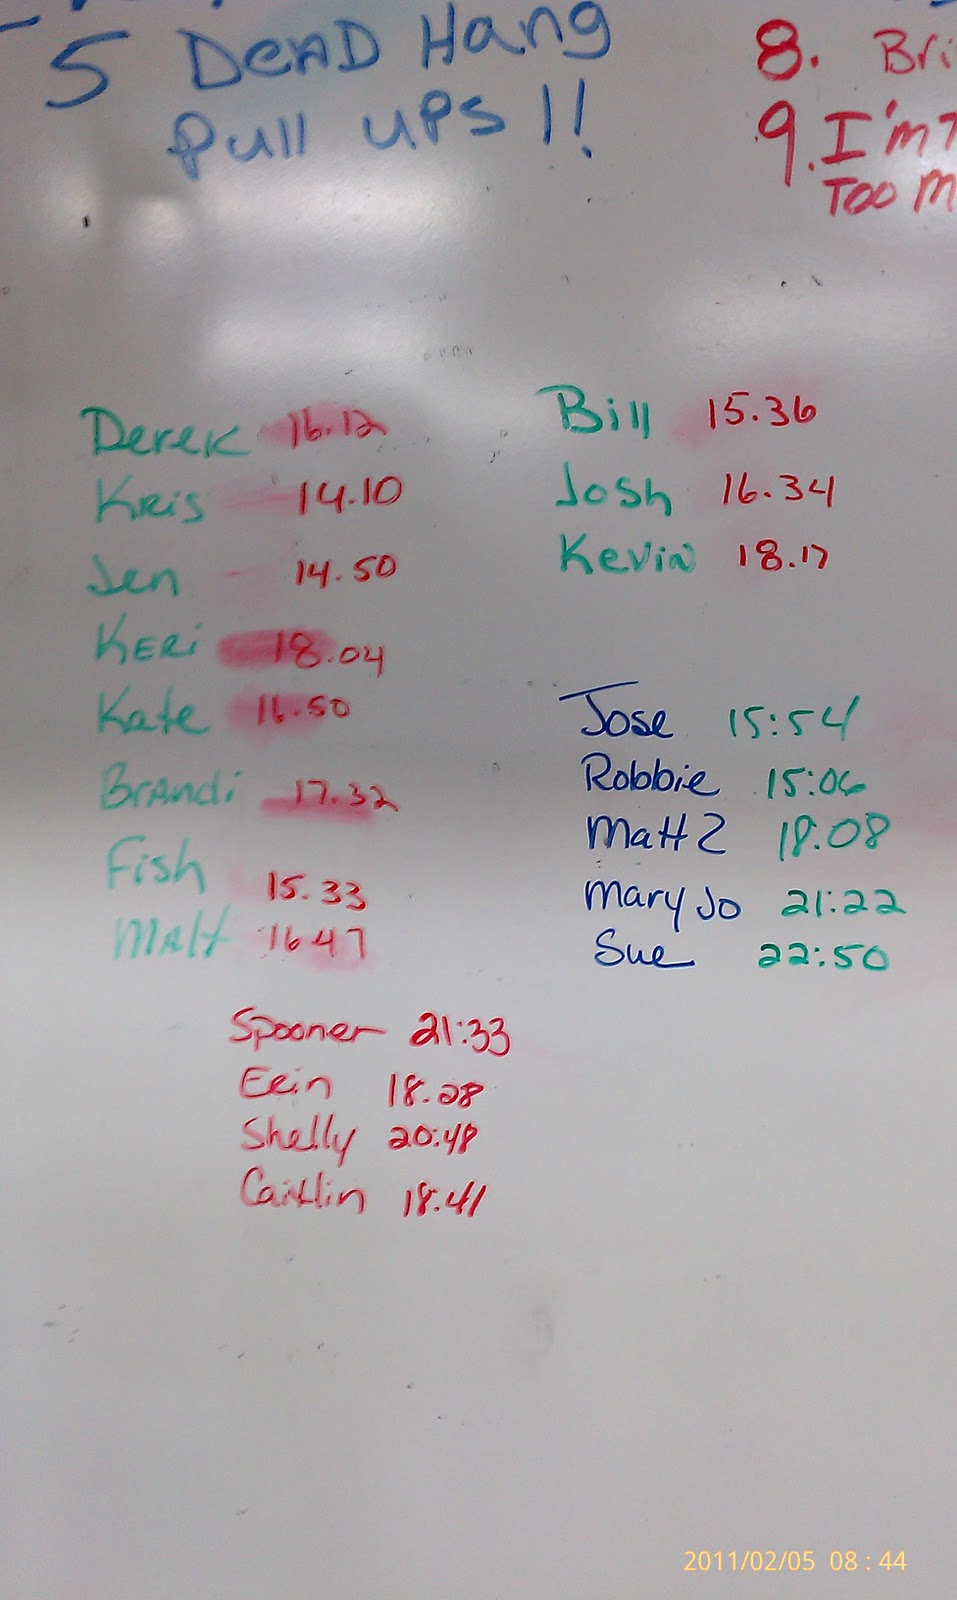 5 Dead Hang
Pull ups !!
8. Bri
9. I'm
Too M
Derek 16.12
Kris 14.10
Jen 14.50
Keri 18.04
Kate 16.50
Brandi 17.32
Fish 15.33
Matt 16 47
Bill 15.36
Josh 16.34
Kevin 18.17
Jose 15:54
Robbie 15:06
Matt Z 18:08
Mary Jo 21:22
Sue 22:50
Spooner 21:33
Erin 18.28
Shelly 20:48
Caitlin 18.41
2011/02/05 08:44